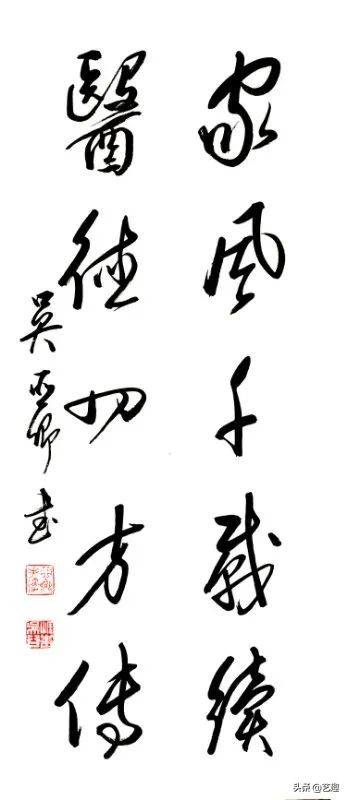 家風千載續
醫德四方傳
吳亞卿書
头条@艺趣